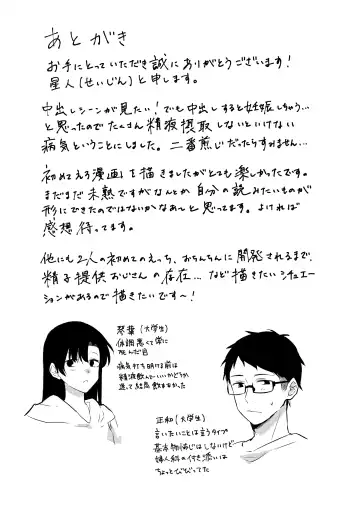 あとがき
お手にとっていただき誠にありがとうございます！
星人（せいじん）と申します。
中出しシーンが見たい！でも中出しすると妊娠しちゃう…
と思ったのでたくさん精液摂取しないといけない
病気ということにしました。二番煎じだったらすみません…
初めてえろ漫画を描きましたがとても楽しかったです。
まだまだ未熟ですがなんとか自分の読みたいものが
形にできたのではないかなあ〜と思ってます。よければ
感想待ってます。
他にも2人の初めてのえっち、おちんちんに開発されるまで、
精子提供おじさんの存在…など描きたいシチュエー
ションがあるので描きたいです〜！
琴葉（大学生）
体調悪くて常に
死んだ目
病気打ち明ける前は
精液飲んでいいかどうか
迷って結局飲まなかった
正和（大学生）
言いたいことは言うタイプ
基本物怖じはしないけど
婦人科の付き添いは
ちょっとびびってた